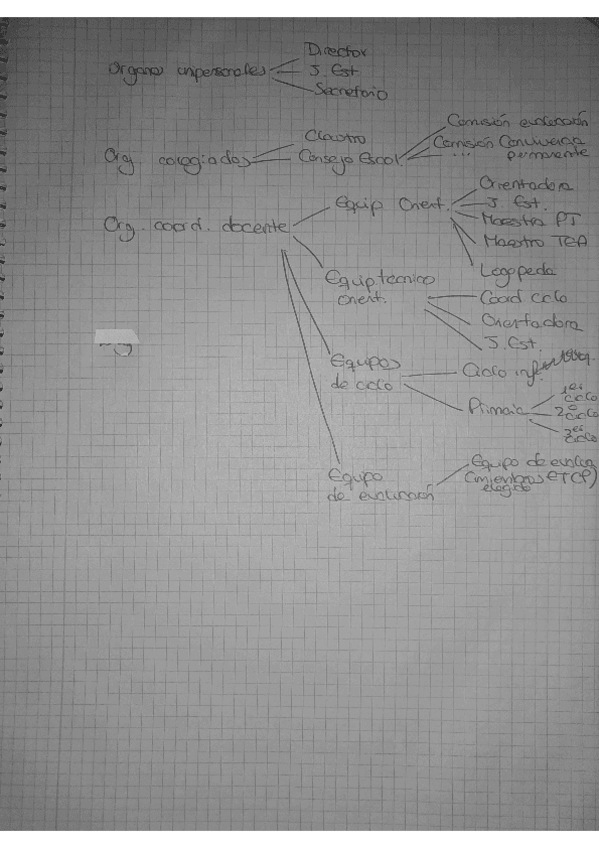 Director
Organos unipersonales
J. Est
Secretario
Comisión evaluación
Claustro
Comisión Convivencia
Org. colegiados
Consejo Escol.
... permanente
Orientadora
Equip Orient.
J. Est.
Org. coord. docente
Maestra PT
Maestro TEA
Logopeda
Equip técnico
Orient.
Coord ciclo
Orientadora
J. Est.
Equipos
de ciclo
Ciclo
1er ciclo
Primaria
2º ciclo
3er ciclo
Equipo
de evaluación
Equipo de evalua
(miembros ETCP)
elegido